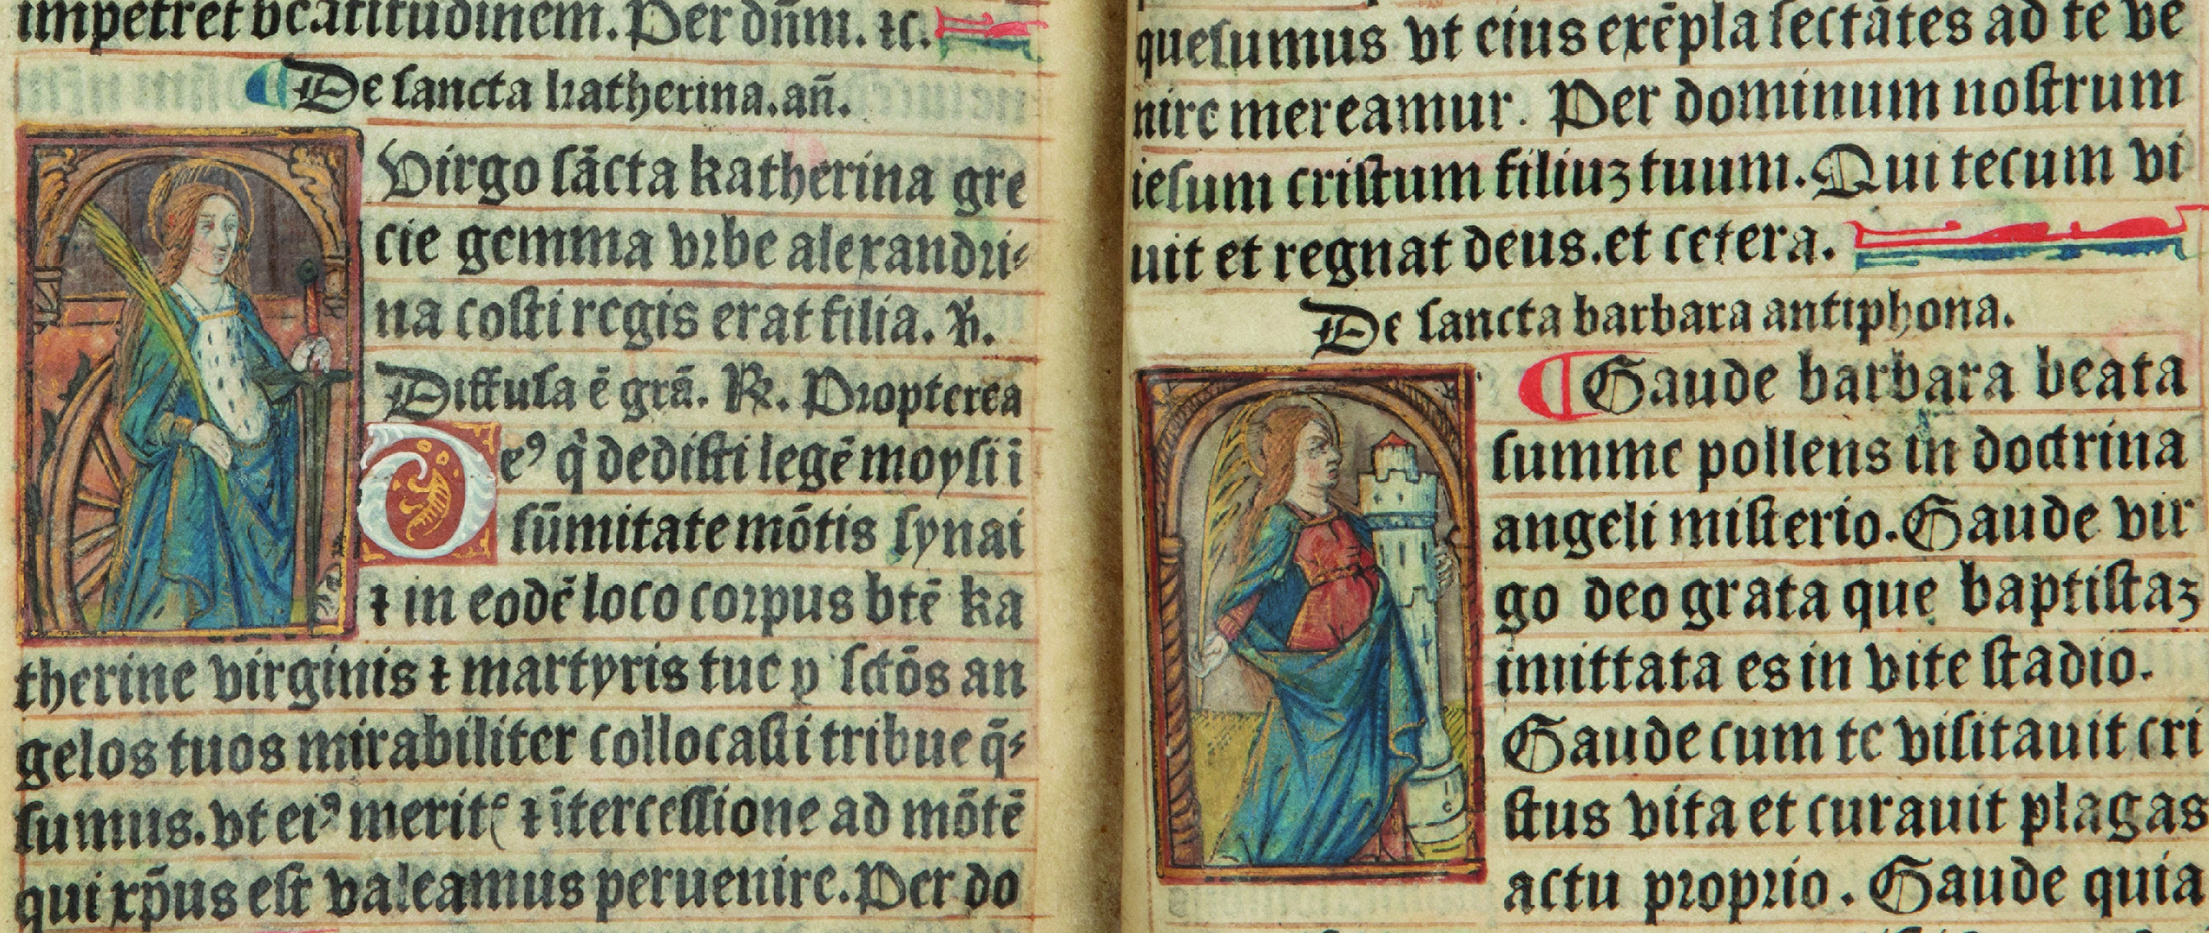 impetret beatitudinem. Per dñm. ⁊c.
De sancta katherina. añ.
Virgo sācta katherina gre
cie gemma vrbe alexandri⸗
na costi regis erat filia. V̷.
Diffusa ē grā. ℟. Propterea
Deꝰ q̇ dedisti legē moysi ī
sūmitate mōtis synai
⁊ in eodē loco corpus btē ka
therine virginis ⁊ martyris tue p sctōs an
gelos tuos mirabiliter collocasti tribue q̄⸗
sumus. vt eiꝰ merit⁊ ⁊ ītercessione ad mōtē
qui xp̄us est valeamus peruenire. Per do
quesumus vt eius exēpla sectātes ad te ve
nire mereamur. Per dominum nostrum
iesum cristum filiuꝫ tuum. Qui tecum vi
uit et regnat deus. et cetera.
De sancta barbara antiphona.
Gaude barbara beata
summe pollens in doctrina
angeli misterio. Gaude vir
go deo grata que baptistaꝫ
imittata es in vite stadio.
Gaude cum te visitauit cri
stus vita et curauit plagas
actu proprio. Gaude quia